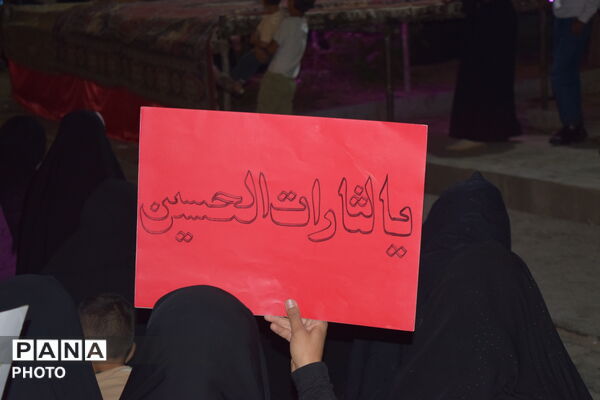 یا لثارات الحسین
PANA
PHOTO